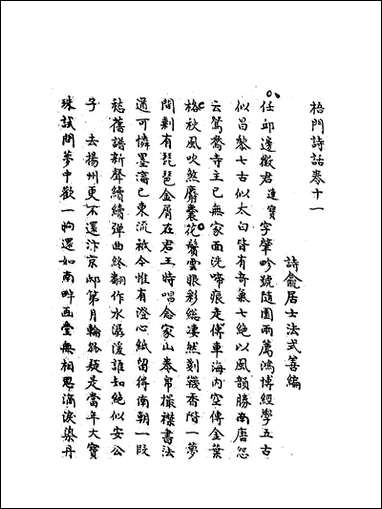 梧門詩話卷十一
詩龕居士法式善編
任邱邊徵君連寶字肇畛號隨園兩薦鴻博經學五古
似昌黎七古似太白皆有奇氣七絕以風韻勝南唐怨
云鴛喬寺主已無家面洗啼痕走傳車海內空傳金葉
格秋風吹煞麝囊花鬢雲眼彩總凄然剗襪香階一夢
間剩有琵琶金屑在君王時唱念家山卷帛撮襟書法
遒可憐墨瀋已東流祇今惟有澄心紙留得南朝一段
愁舊譜新聲續續彈曲終翻作水潺湲誰知絕似安公
子 去揚州更不還汴京邸第月輪終疑是當年大寶
珠試問夢中歡一晌還如南畔画堂無相思滴淚染丹